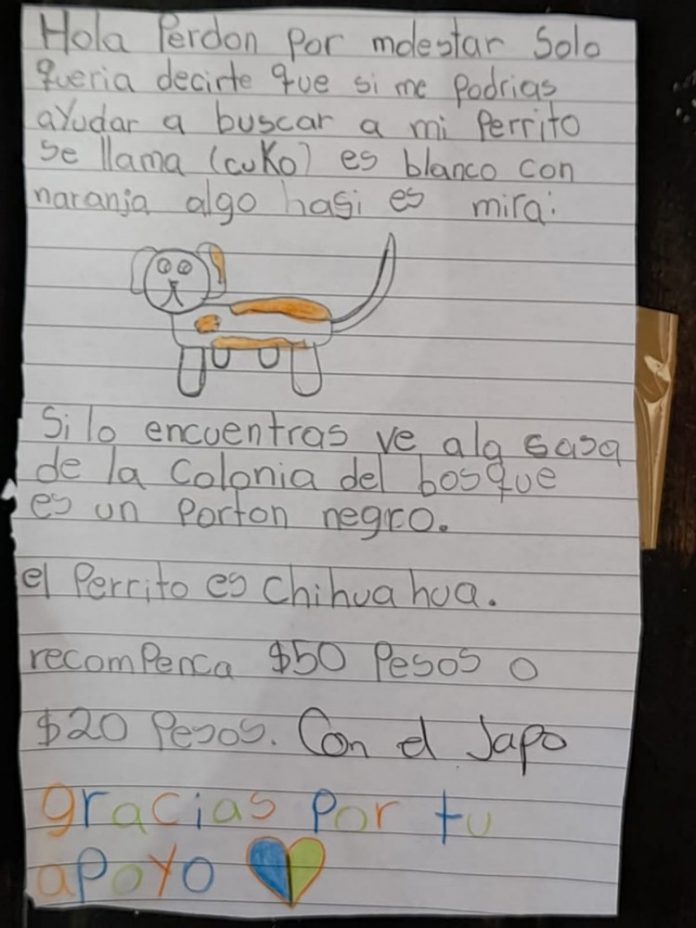 Hola Perdon por molestar Solo
queria decirte que si me podrias
ayudar a buscar a mi Perrito
se llama (cuKo) es blanco con
naranja algo hasi es mira:
Si lo encuentras ve ala casa
de la Colonia del bosque
es un Porton negro.
el Perrito es Chihua hua.
recomPenca $50 Pesos o
$20 Pesos. Con el Japo
gracias Por tu
apoyo